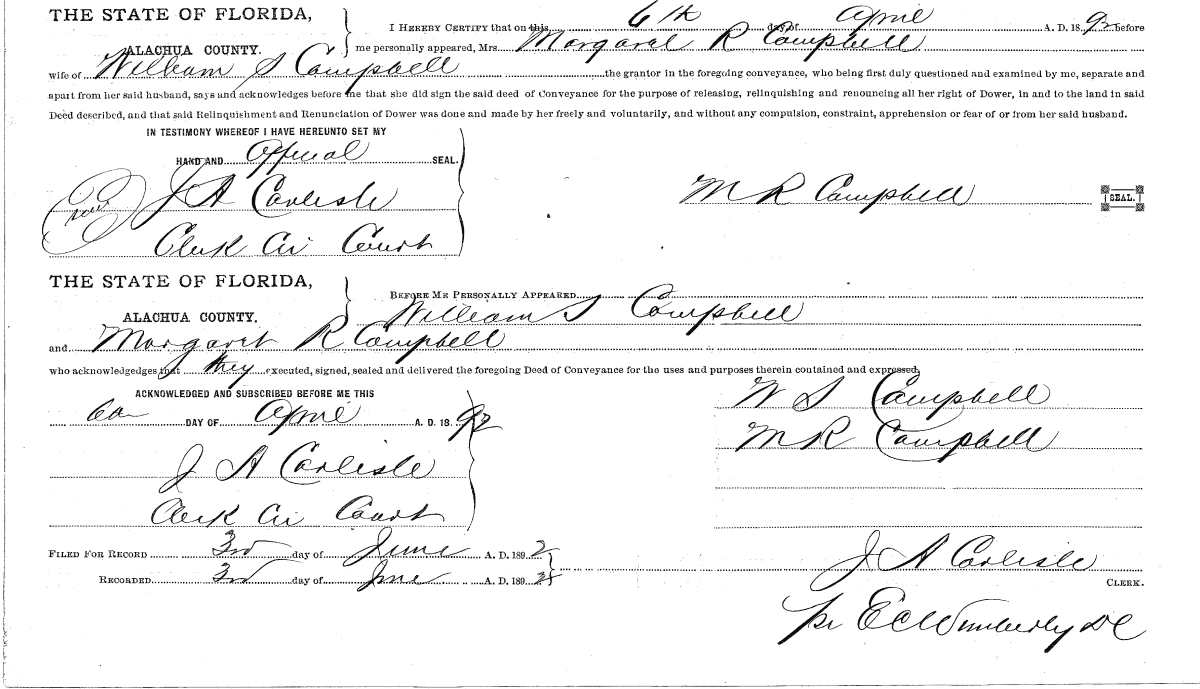 THE STATE OF FLORIDA,
I HEREBY CERTIFY that on this 6th day of April A. D. 1892 before
ALACHUA COUNTY.
me personally appeared, Mrs. Margaret R Campbell
wife of William S Campbell the grantor in the foregoing conveyance, who being first duly questioned and examined by me, separate and
apart from her said husband, says and acknowledges before me that she did sign the said deed of Conveyance for the purpose of releasing, relinquishing and renouncing all her right of Dower, in and to the land in said
Deed described, and that said Relinquishment and Renunciation of Dower was done and made by her freely and voluntarily, and without any compulsion, constraint, apprehension or fear of or from her said husband.
IN TESTIMONY WHEREOF I HAVE HEREUNTO SET MY
HAND AND Official SEAL.
J A Carlisle
M R Campbell SEAL.
Clerk Cir Court
THE STATE OF FLORIDA,
BEFORE ME PERSONALLY APPEARED
ALACHUA COUNTY.
William S Campbell
and Margaret R Campbell
who acknowledgedges that they executed, signed, sealed and delivered the foregoing Deed of Conveyance for the uses and purposes therein contained and expressed,
ACKNOWLEDGED AND SUBSCRIBED BEFORE ME THIS
W S Campbell
DAY OF April A. D. 1892
M R Campbell
J A Carlisle
Clerk Cir Court
FILED FOR RECORD 3rd day of June A. D. 1892
J A Carlisle
RECORDED 3rd day of June A. D. 189
CLERK.
pr E C Wimberly DC